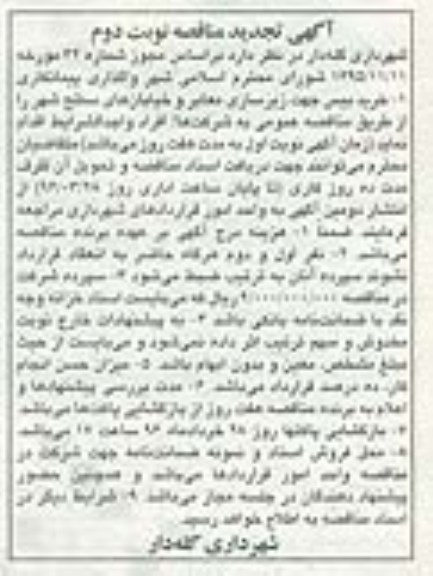 آگهی تجدید مناقصه نوبت دوم
شهرداری گله‌دار در نظر دارد براساس مجوز شماره ۳۲ مورخه
۱۳۹۵/۱۱/۲۱ شورای محترم اسلامی شهر واگذاری پیمانکاری
۱- خرید بیس جهت زیرسازی معابر و خیابان‌های سطح شهر را
از طریق مناقصه عمومی به شرکت‌ها/ افراد واجدالشرایط اقدام
نماید (زمان آگهی نوبت اول به مدت هفت روز می‌باشد) متقاضیان
محترم می‌توانند جهت دریافت اسناد مناقصه و تحویل آن ظرف
مدت ده روز کاری (تا پایان ساعت اداری روز ۹۶/۰۳/۲۸) از
انتشار دومین آگهی به واحد امور قراردادهای شهرداری مراجعه
فرمایند ضمناً ۱- هزینه درج آگهی بر عهده برنده مناقصه
می‌باشد. ۲- نفر اول و دوم هرگاه حاضر به انعقاد قرارداد
نشوند سپرده آنان به ترتیب ضبط می‌شود ۳- سپرده شرکت
در مناقصه ریال که می‌بایست اسناد خزانه وجه
نقد یا ضمانت‌نامه بانکی باشد ۴- به پیشنهادات خارج نوبت
مخدوش و مبهم ترتیب اثر داده نمی‌شود و می‌بایست از حیث
مبلغ مشخص، معین و بدون ابهام باشد. ۵- میزان حسن انجام
کار، ده درصد قرارداد می‌باشد. ۶- مدت بررسی پیشنهادها و
اعلام به برنده مناقصه هفت روز از بازگشایی پاکت‌ها می‌باشد.
۷- بازگشایی پاکتها روز خردادماه ۹۶ ساعت ۱۲ می‌باشد.
۸- محل فروش اسناد و نمونه ضمانت‌نامه جهت شرکت در
مناقصه واحد امور قراردادها می‌باشد و همچنین حضور
پیشنهاد دهندگان در جلسه مجاز می‌باشد. ۹- شرایط دیگر در
اسناد مناقصه به اطلاع خواهد رسید.
شهرداری گله‌دار